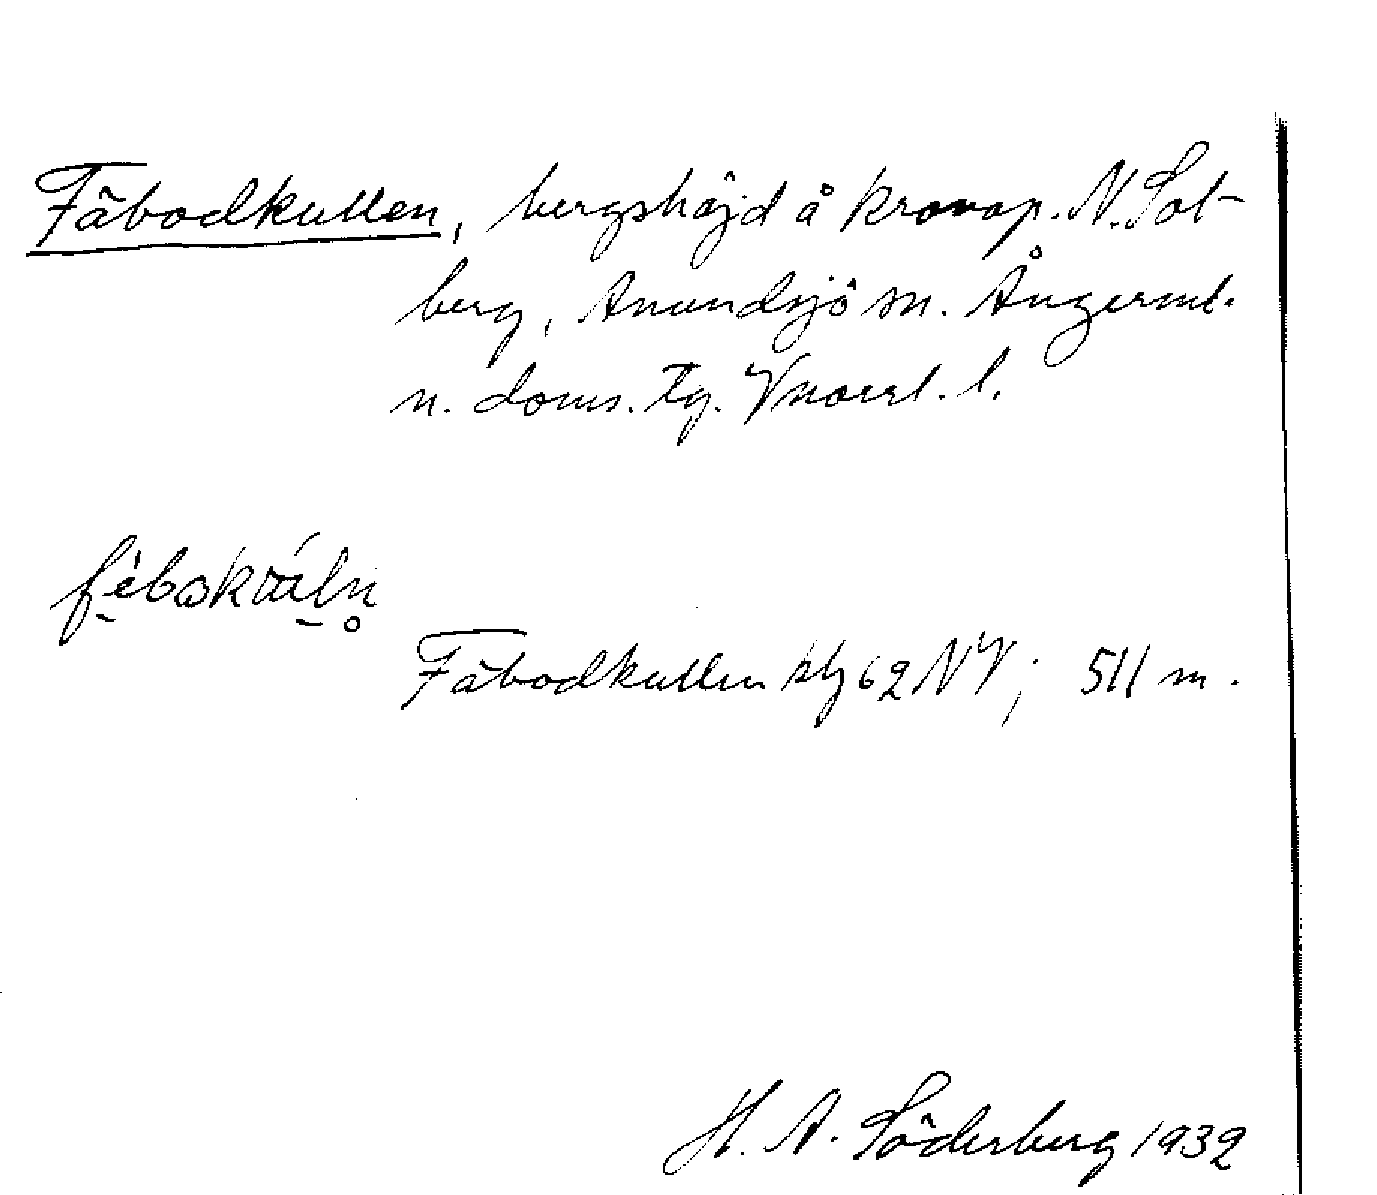 Fäbodkullen, bergshöjd å kronop. N. Sol-
berg, Anundsjö sn. Ångerml.
n. doms. tg. Vnorrl. l.
Fäbodkullen blg 62 NV; 511 m.
H. A. Söderberg 1932